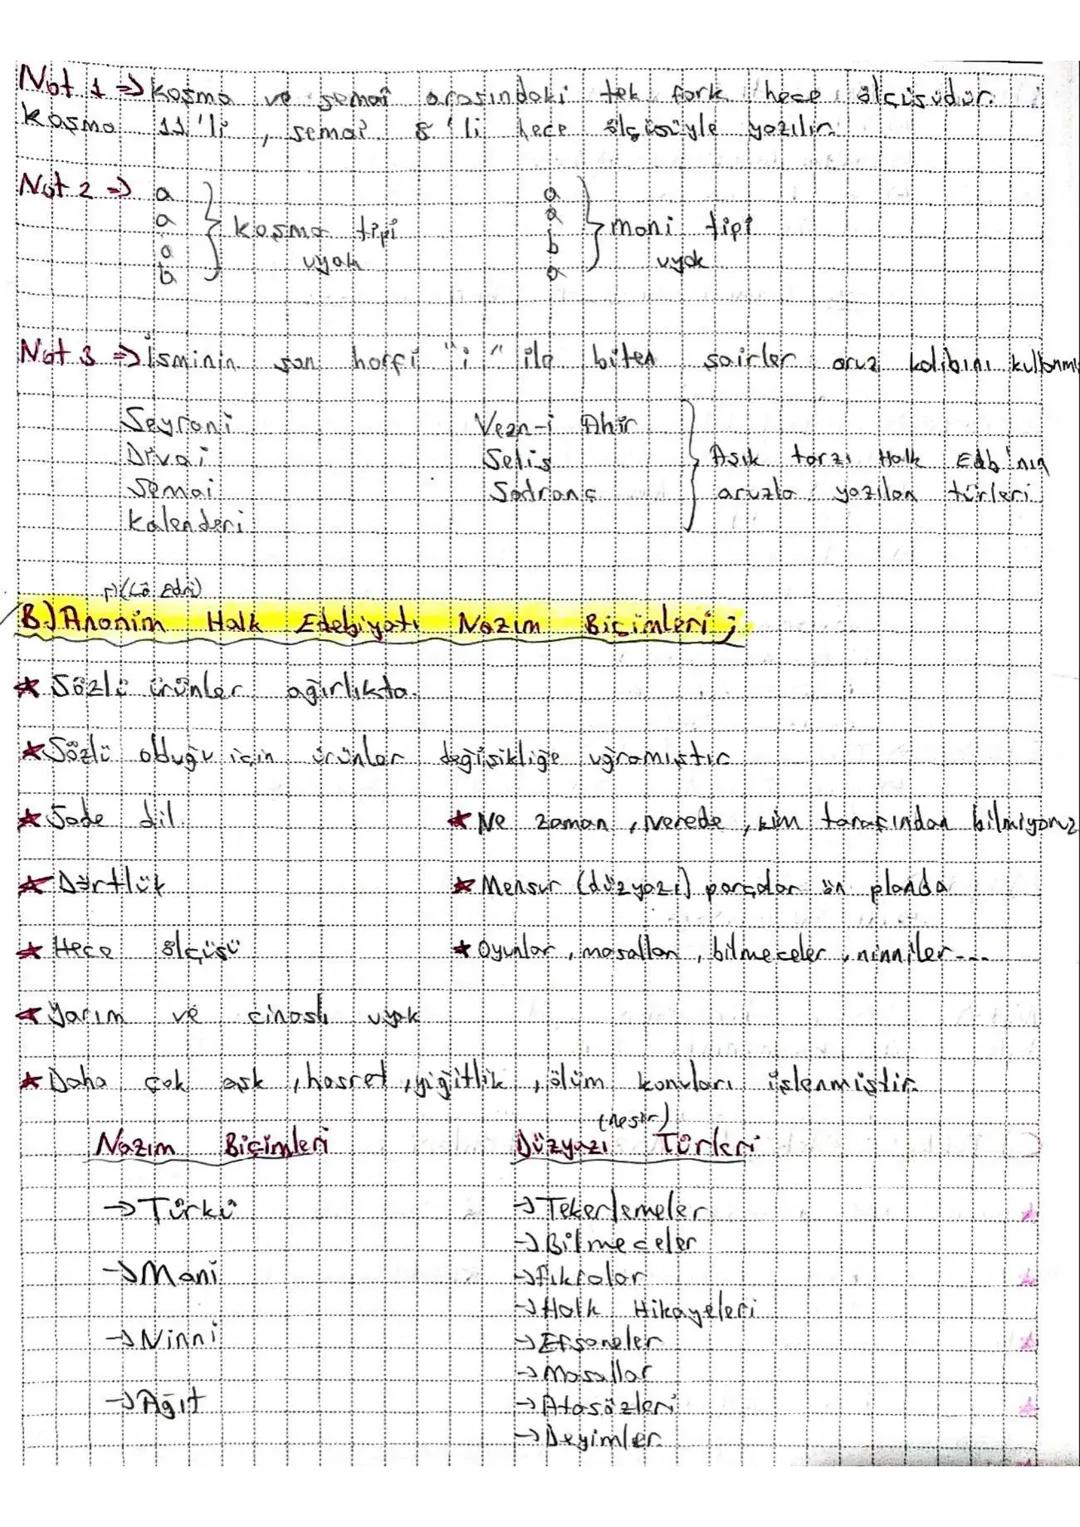 Not 1 => Koşma ve semai arasındaki tek fark hece ölçüsüdür.
Koşma 11'li, semai 8'li hece ölçüsüyle yazılır.
Not 2 => a a a b } koşma tipi uyak
a a b a } mani tipi uyak
Not 3 => İsminin son harfi "i" ile biten şairler aruz kalıbını kullanmış
Seyrani Vezn-i Ahir
Divai Selis
Semai Satranç
Kalenderi
} Aşık tarzı Halk Edb'nın
aruzla yazılan türleri
(Lâ Edri)
B.) Anonim Halk Edebiyatı Nazım Biçimleri ;
* Sözlü ürünler ağırlıkta.
* Sözlü olduğu için ürünler değişikliğe uğramıştır
* Sade dil. * Ne zaman, nerede, kim tarafından bilmiyoruz
* Dörtlük * Mensur (düzyazı) parçalar ön planda
* Hece ölçüsü * Oyunlar, masallar, bilmeceler, ninniler....
* Yarım ve cinaslı uyak
* Daha çok aşk, hasret, yiğitlik, ölüm konuları işlenmiştir.
Nazım Biçimleri Düzyazı (nesir) Türleri
-> Türkü -> Tekerlemeler
-> Bilmeceler
-> Mani -> Fıkralar
-> Halk Hikayeleri
-> Ninni -> Efsaneler
-> Masallar
-> Ağıt -> Atasözleri
-> Deyimler